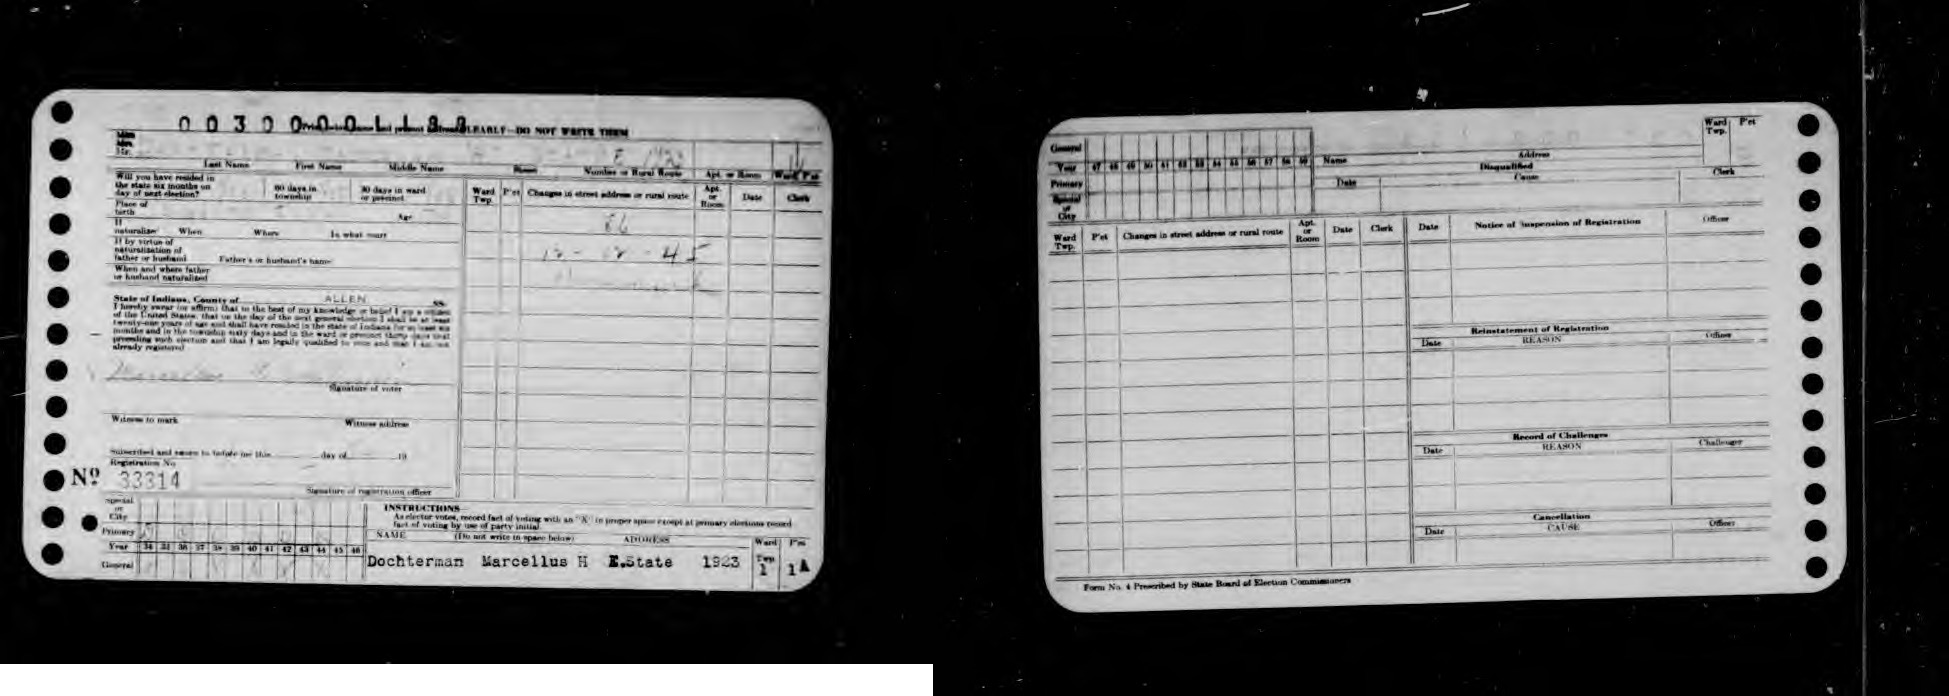 CLEARLY—DO NOT WRITE THEM
Mr.
Last Name First Name Middle Name Street Number or Rural Route Apt. or Room Ward P'ct
Will you have resided in
the state six months on
day of next election?
60 days in
township
30 days in ward
or precinct
Place of
birth
Age
If
naturalized When Where In what court
If by virtue of
naturalization of
father or husband Father's or husband's name
When and where father
or husband naturalized
State of Indiana, County of ALLEN ss.
I hereby swear (or affirm) that to the best of my knowledge or belief I am a citizen
of the United States, that on the day of the next general election I shall be at least
twenty-one years of age and shall have resided in the state of Indiana for at least six
months and in the township sixty days and in the ward or precinct thirty days next
preceding such election and that I am legally qualified to vote and that I am not
already registered
Signature of voter
Witness to mark Witness address
Subscribed and sworn to before me this day of 19
Registration No.
Nº 33314
Signature of registration officer
Ward
Twp. P'ct Changes in street address or rural route Apt.
or
Room Date Clerk
86
12 - 12 - 45
Special
or
City
Primary
Year 34 35 36 37 38 39 40 41 42 43 44 45 46
General
INSTRUCTIONS
As elector votes, record fact of voting with an "X" in proper space except at primary elections record
fact of voting by use of party initial.
NAME (Do not write in space below) ADDRESS Ward P'ct
Dochterman Marcellus H E.State 1923 Twp 1 1A
General
Year 47 48 49 50 51 52 53 54 55 56 57 58 59
Primary
Special
or
City
Name Address Ward
Twp. P'ct
Disqualified
Date Cause Clerk
Ward
Twp. P'ct Changes in street address or rural route Apt.
or
Room Date Clerk
Date Notice of Suspension of Registration Officer
Reinstatement of Registration
Date REASON Officer
Record of Challenges
Date REASON Challenger
Cancellation
Date CAUSE Officer
Form No. 4 Prescribed by State Board of Election Commissioners